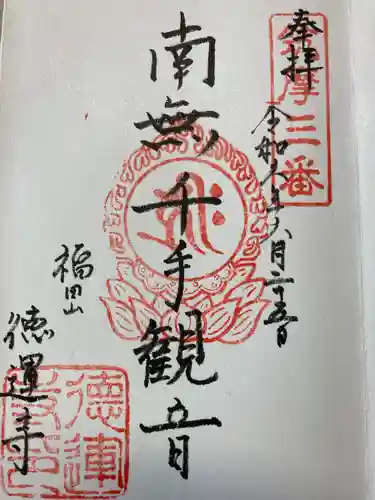 奉拝
三番
令和六年六月二十五日
南無千手観音
福田山
徳運寺
徳運